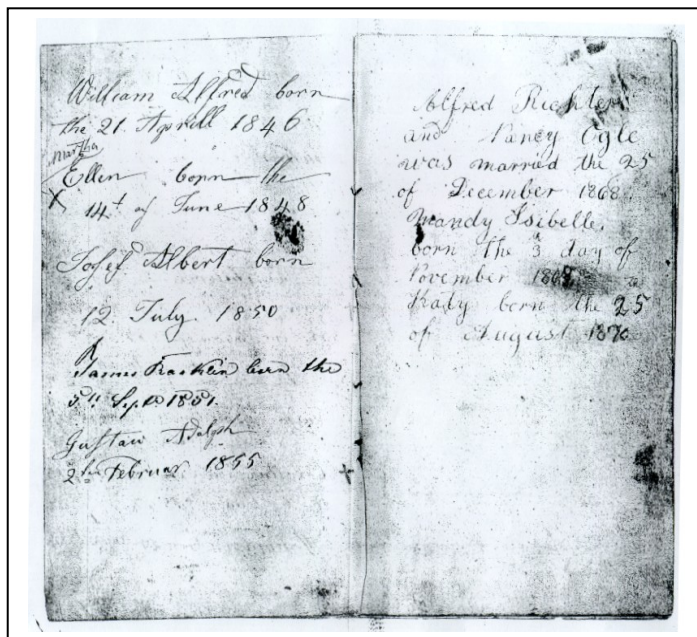 William Alfred born
the 21. Aprill 1846
Martha
Ellen born the
14t of June 1848
Josef Albert born
12 July 1850
James Franklin born the
5th Sept 1851
Gustav Adolph
2th Februar 1855
Alfred Richter
and Nancy Ogle
was married the 25
of December 1868
Mandy Isibelle
born the 3 day of
November 1868
Kady born the 25
of August 1870